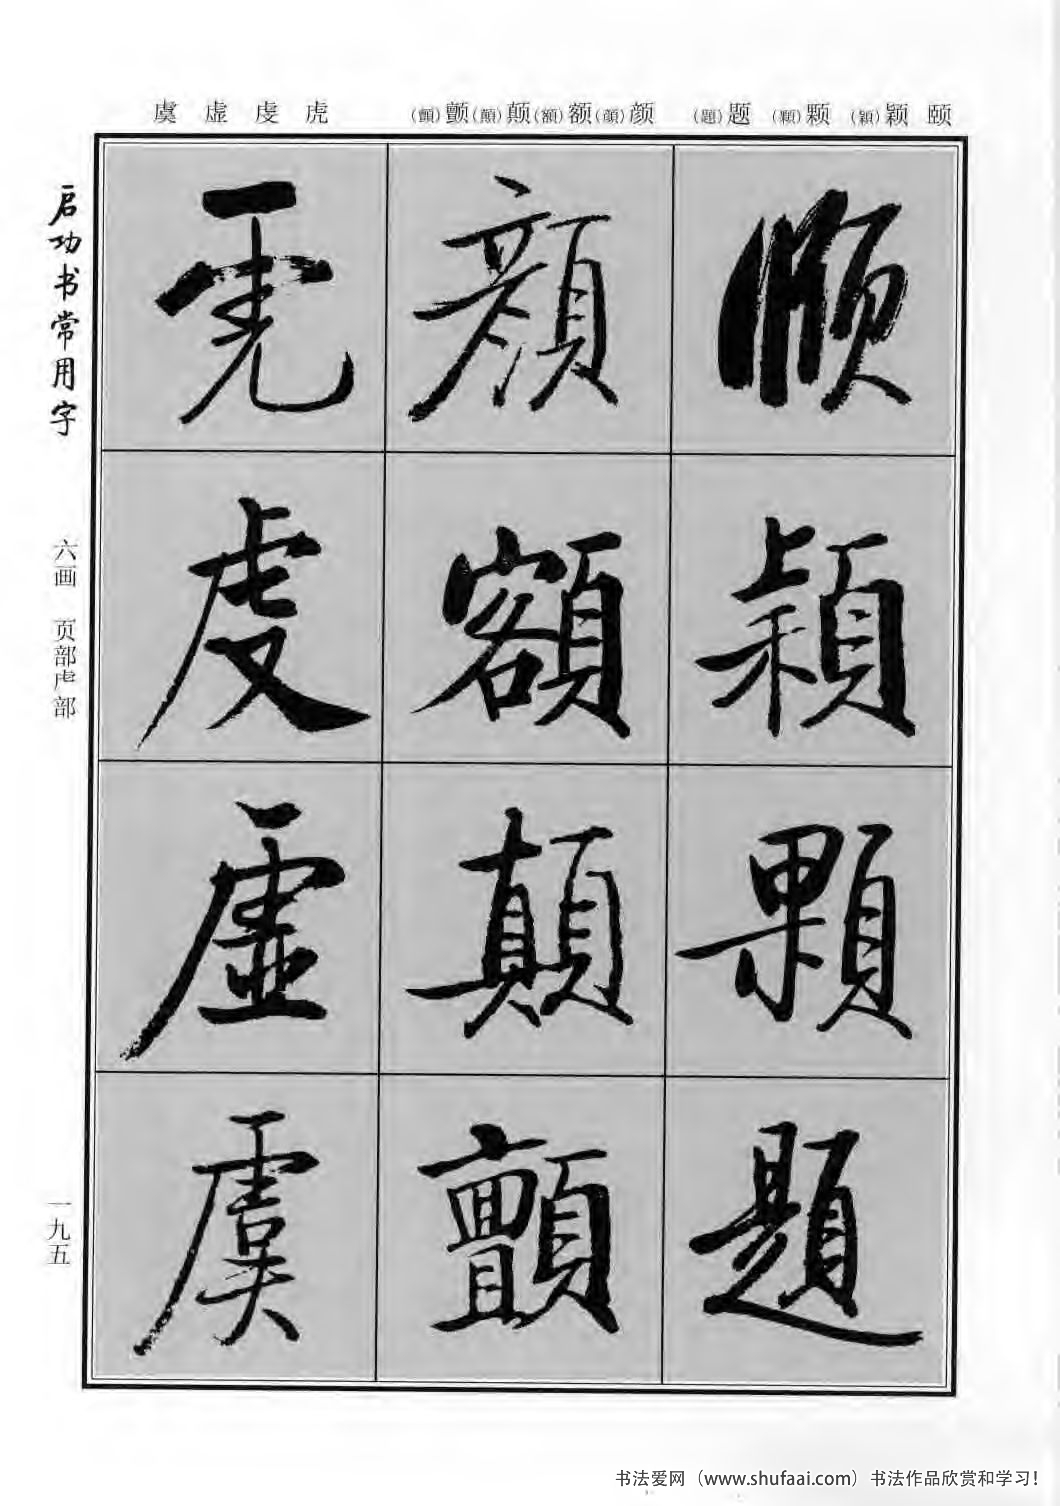 颐 颖(穎) 颗(顆) 题(題) 颜(顔)额(額)颠(顛)颤(顫) 虎 虔 虚 虞
順穎顆題
顔額顛顫
虎虔虚虞
启功书常用字
六画 页部虍部
一九五
书法爱网（www.shufaai.com）书法作品欣赏和学习！